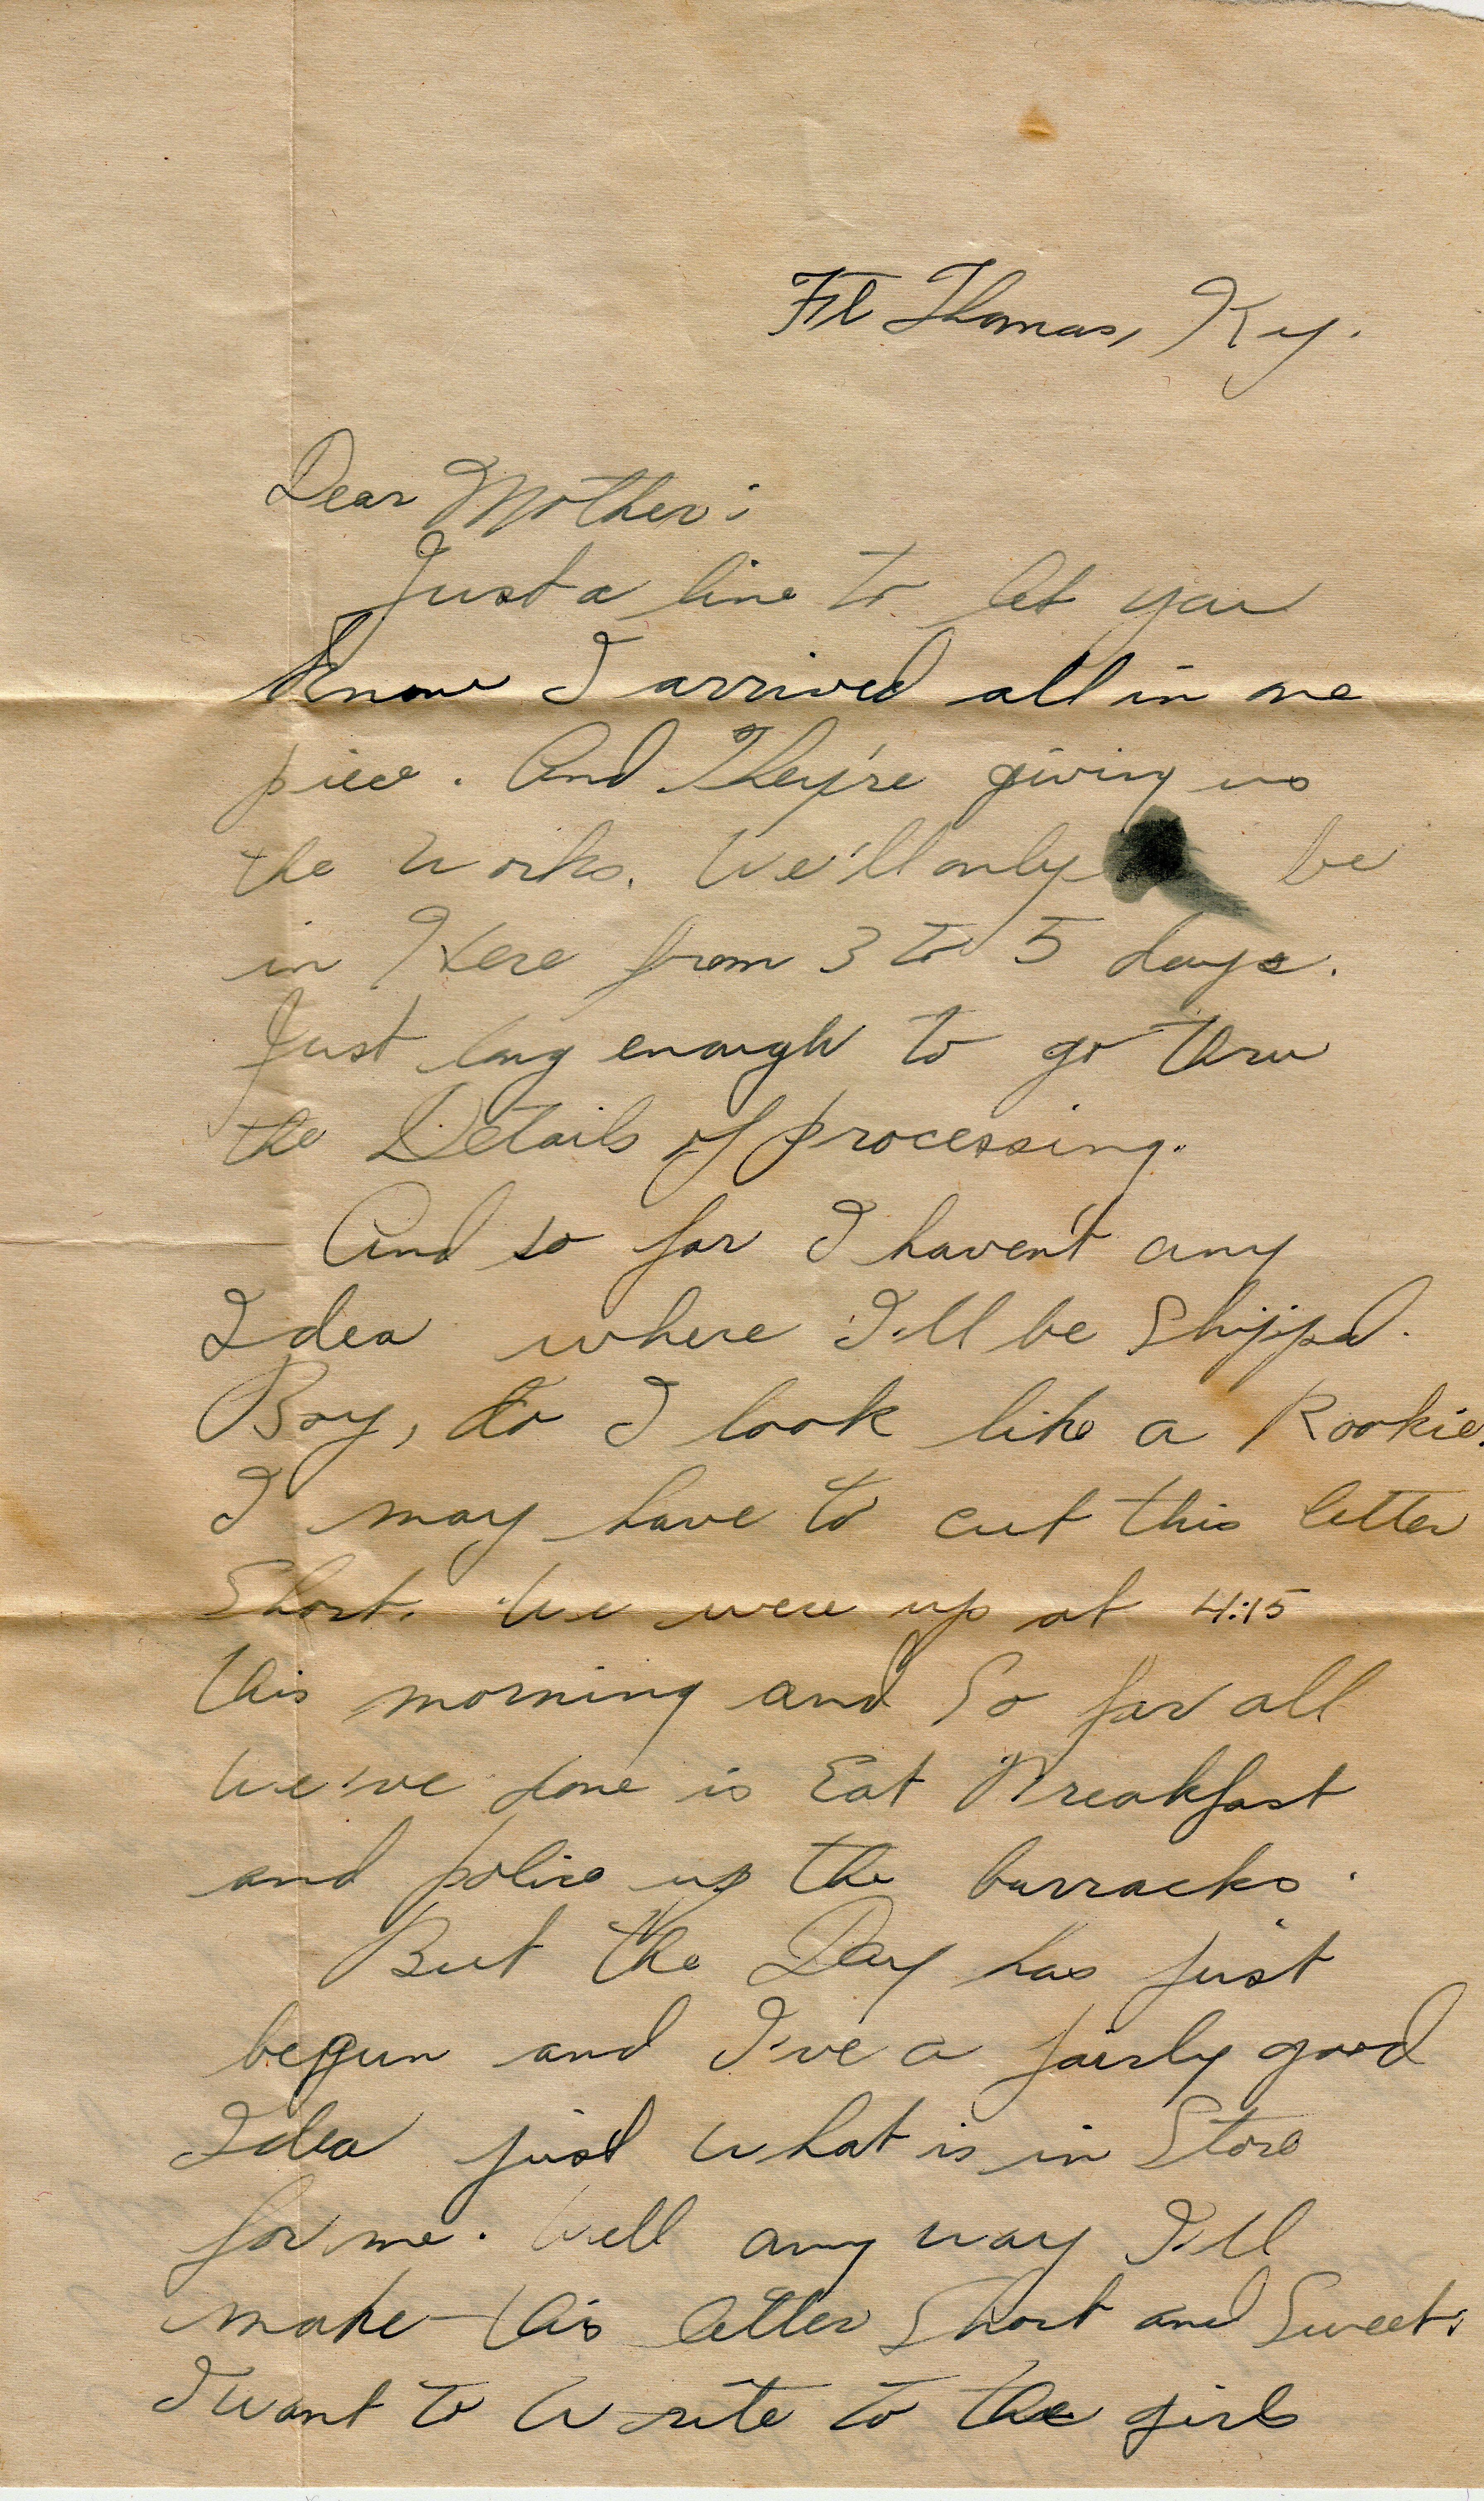 Ft Thomas, Ky.
Dear Mother:
Just a line to let you
know I arrived all in one
piece. And They're giving us
the works. We'll only be
in Here from 3 to 5 days.
Just long enough to go thru
the Details of processing.
And so far I haven't any
Idea where I'll be Shipped.
Boy, do I look like a Rookie.
I may have to cut this letter
Short. We were up at 4:15
this morning and So far all
we've done is Eat Breakfast
and police up the barracks.
But the Day has just
begun and I've a fairly good
Idea just what is in Store
for me. Well any way I'll
make this letter Short and Sweet.
I want to write to the girls